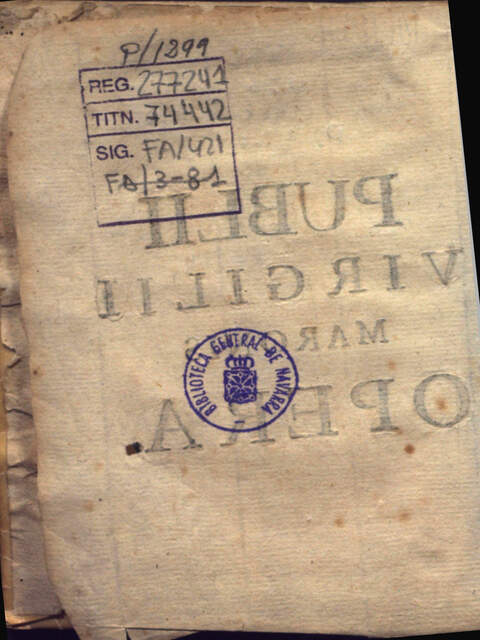 P/1299
REG. 277241
TITN. 74442
SIG. FA/421
FA/3-81
PUBLII
VIRGILII
OPERA
BIBLIOTECA GENERAL DE NAVARRA